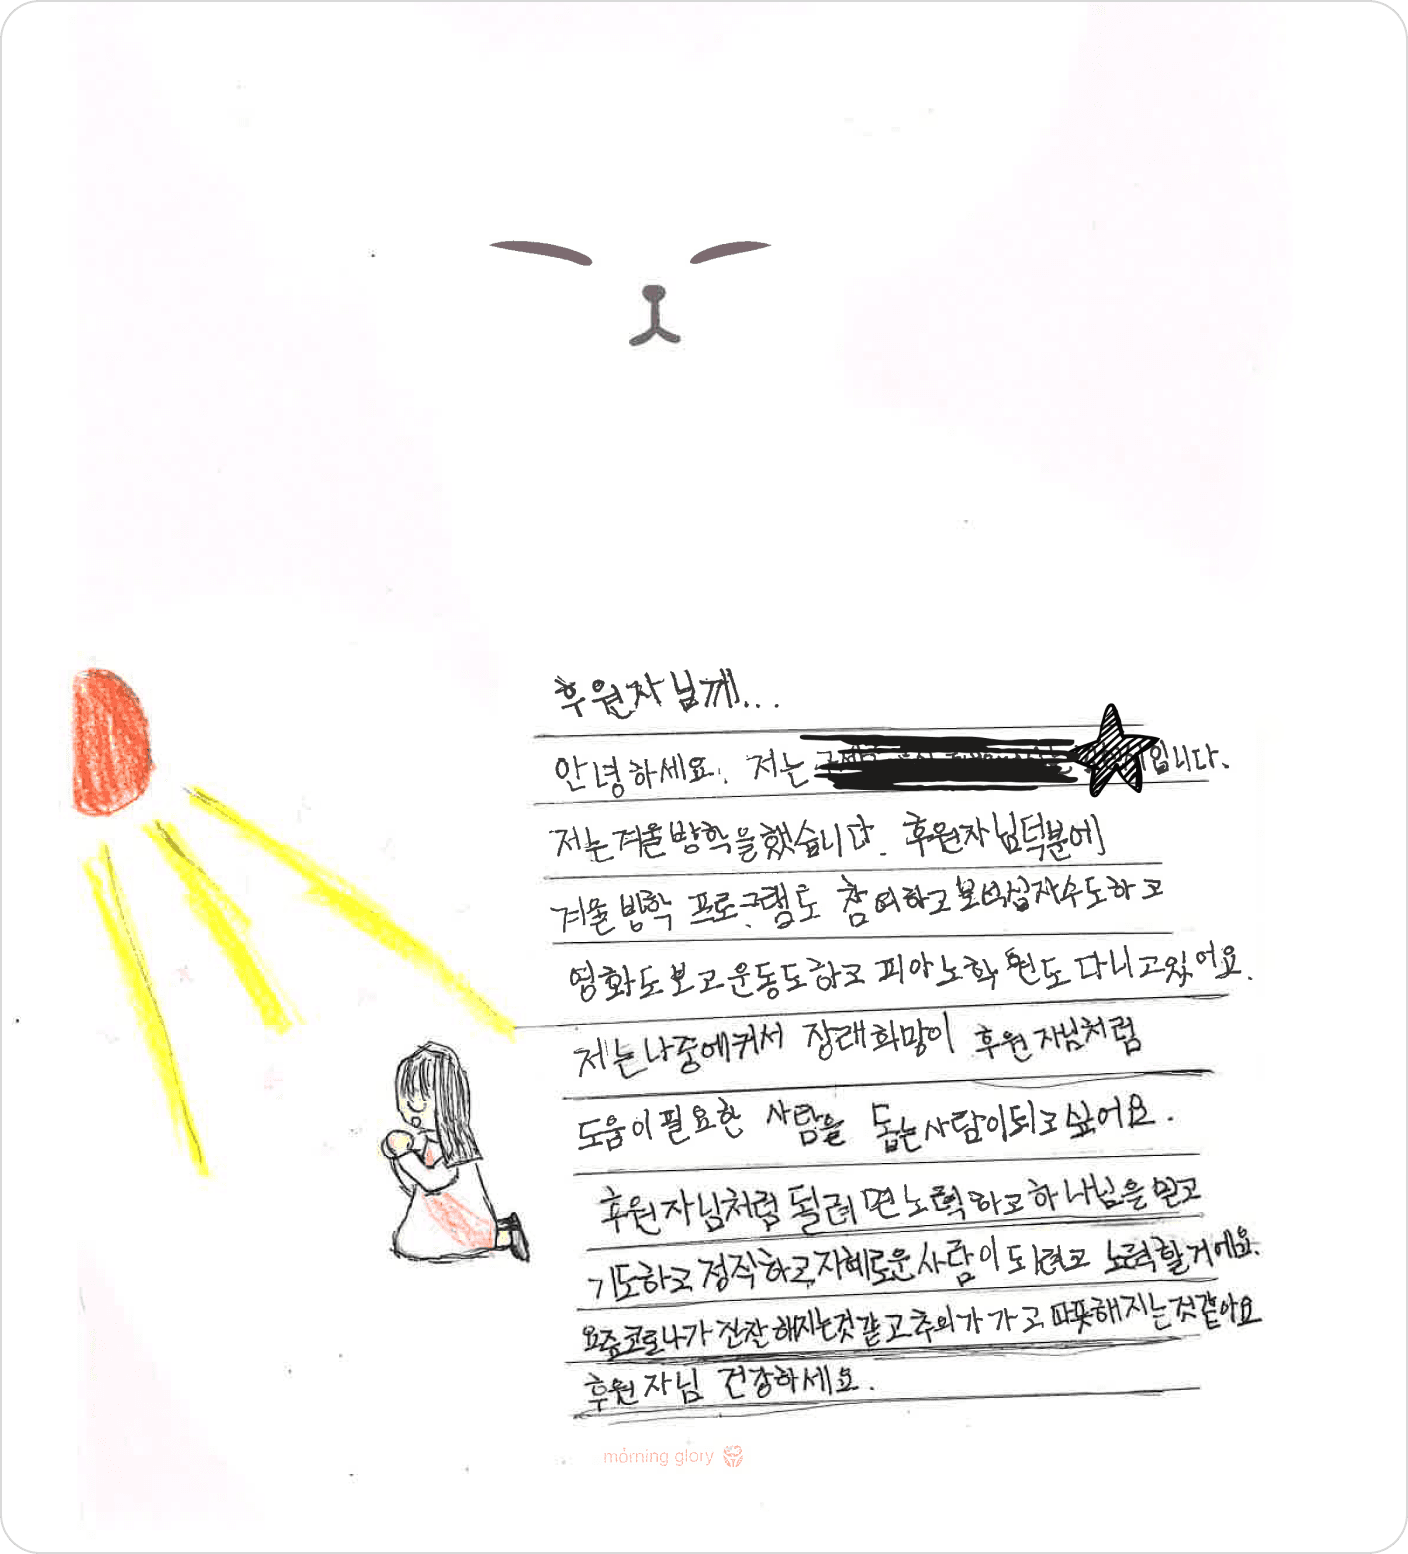 후원자님께...
안녕하세요. 저는 입니다.
저는겨울방학을했습니다. 후원자님덕분에
겨울방학 프로그램도 참여하고보석십자수도하고
영화도보고운동도하고 피아노학원도 다니고있어요.
저는나중에커서 장래희망이 후원자님처럼
도움이필요한 사람을 돕는사람이되고싶어요.
후원자님처럼 될려면노력하고하나님을믿고
기도하고 정직하고,지혜로운사람이되려고 노력할거에요.
요즘코로나가잔잔해지는것같고추위가가고따뜻해지는것같아요
후원자님 건강하세요.
morning glory